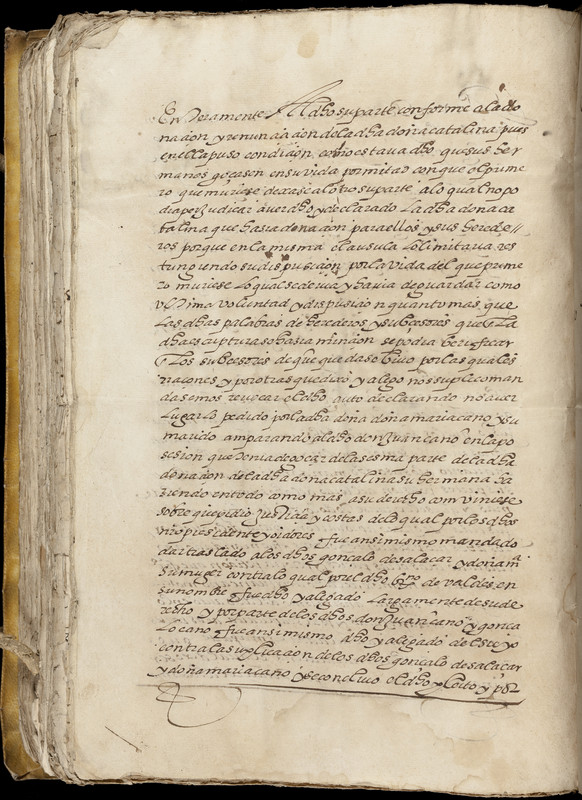 Enteramente Al dho su parte conforme a la do
nacion y renunciacion de la dha doña catalina pues
en ella puso condicion como estava dho que sus her
manos goçasen en su vida por mitad con que el prime
ro que muriese dexase al otro su parte a lo qual no po
dia perJudicar aver dho y declarado La dha doña ca
talina que hazia donacion para ellos y sus herede
ros porque en la misma clausula Lo limitava res
tringiendo su dispusicion por la vida del que prime
ro muriese Lo qual se devia y havia de guardar como
vltima voluntad y dispusicion quanto mas que
Las dhas palabras de herederos y subcesores que La
dha escriptura hazia mincion se podia berificar
Los subcesores de que quedase bivo por las quales
rraçones y por otras que dixo y alego nos suplico man
dasemos revocar el dho auto declarando no aver
Lugar Lo pedido por la dha doña doña maria cano y su
marido amparando al dho don Juan cano en la po
sesion que tenia de goçar de la sesma parte de la dha
donacion de la dha doña catalina su hermana ha
ziendo en todo como mas a su derecho conviniese
sobre que pidio Justicia y costas de lo qual por los dhos
nro presidente y oidores fue ansimismo mandado
dar traslado a los dhos gonçalo de salaçar y doña mª
su muger contra lo qual por el dho de valdes en
su nombre fue dho y alegado Largamente de su de
recho y por parte de los dhos don Juan cano y gonça
Lo cano fue ansimismo dho y alegado de lo suyo
contra la suplicacion de los dhos gonçalo de salaçar
y doña maria cano y se concluio el dho pleito y por